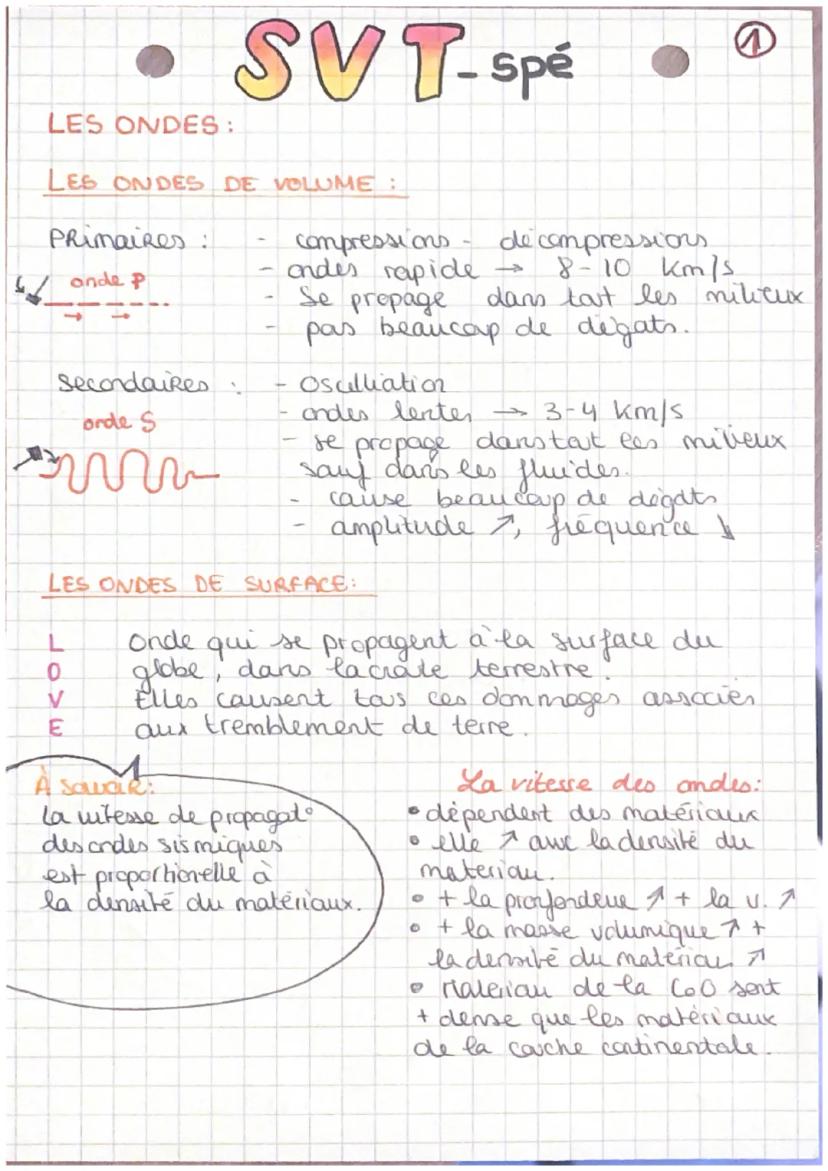 SVT - spé
①
LES ONDES :
LES ONDES DE VOLUME :
PRimaiRes :
- compressions - décompressions
- ondes rapide → 8-10 Km/s
- Se propage dans tout les milieux
- pas beaucoup de dégats.
onde P
Secondaires :
- Oscilliation
- ondes lentes → 3-4 Km/s
- se propage dans tout les milieux
sauf dans les fluides.
- cause beaucoup de dégâts
- amplitude ↗, fréquence ↘
onde S
LES ONDES DE SURFACE :
L
O
V
E
Onde qui se propagent à la surface du
globe, dans la croute terrestre.
Elles causent tous ces dommages associés
aux tremblement de terre.
À savoir :
La vitesse de propagat°
des ondes sismiques
est proportionelle à
la densité du matériaux.
La vitesse des ondes :
• dépendent des matériaux
• elle ↗ avec la densité du
materiau.
• + la profondeur ↗ + la v. ↗
• + la masse volumique ↗ +
la densité du matériau ↗
• Materiau de la CoO sont
+ dense que les matériaux
de la couche continentale.